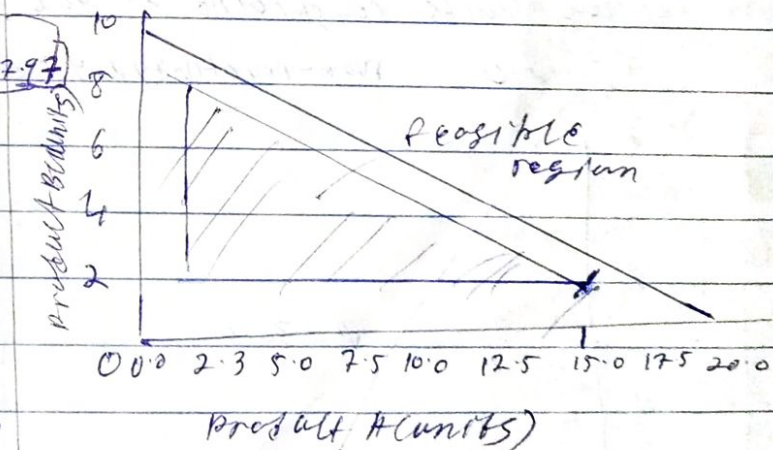 10
7.97
8
6
4
2
Product B(units)
feasible
region
0 0.0 2.3 5.0 7.5 10.0 12.5 15.0 17.5 20.0
Product A(units)